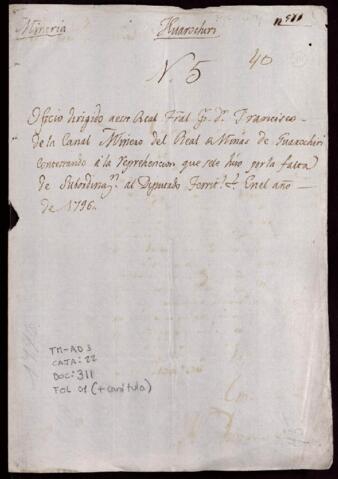 Mineria Huarochiri
N. 5 40
Oficio dirigido a este Real Tral. p. Dn. Francisco
de la Canal Minero del Real de Minas de Guarochiri
contestando â la reprehencion que se le hizo por la falta
de Subordinan. al Diputado Territl. &. En el año
de 1796.
TM-AD3
CATA: 22
DOC: 311
FOL 01 (+ carátula)